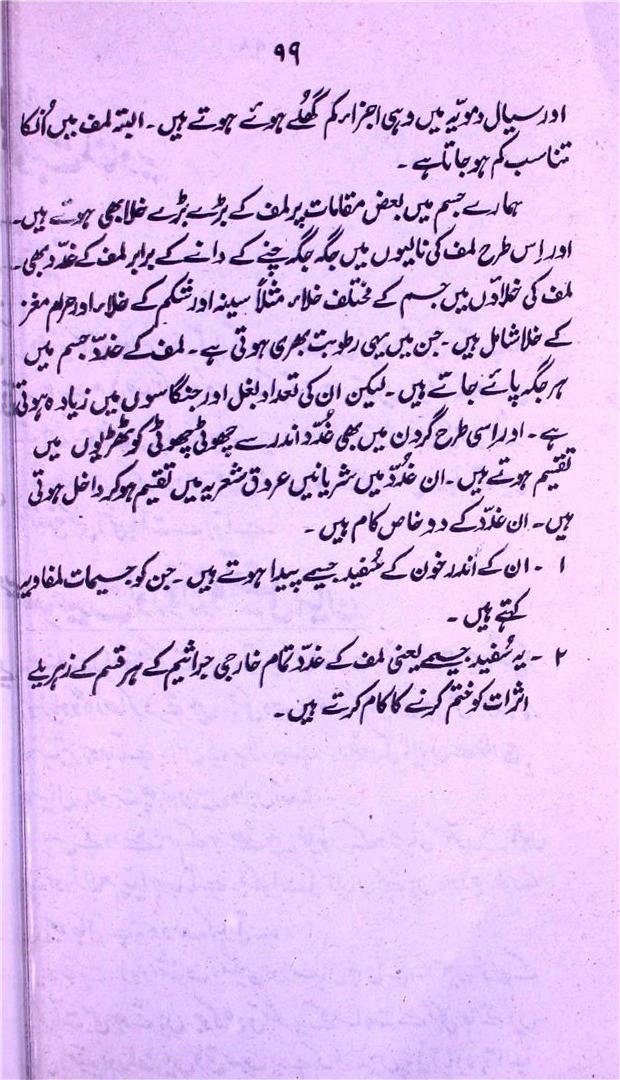 ۹۹
اور سیال دمویّہ میں وہی اجزاء کم گھُلے ہوئے ہوتے ہیں۔ البتہ لمف میں اُنکا
تناسب کم ہوجاتا ہے۔
ہمارے جسم میں بعض مقامات پر لمف کے بڑے بڑے خلا بھی ہوتے ہیں۔
اور اِس طرح لمف کی نالیوں میں جگہ جگہ چنے کے دانے کے برابر لمف کے غدّد بھی۔
لمف کی خلاؤں میں جسم کے مختلف خلاء، مثلاً سینہ اور شکم کے خلاء، اور حرام مغز
کے خلا شامل ہیں۔ جن میں یہی رطوبت بھری ہوتی ہے۔ لمف کے غدّد جسم میں
ہر جگہ پائے جاتے ہیں۔ لیکن ان کی تعداد بغل اور جنگاسوں میں زیادہ ہوتی
ہے۔ اور اِسی طرح گردن میں بھی غُدّد اندر سے چھوٹی چھوٹی کوٹھڑیوں میں
تقیم ہوتے ہیں۔ ان غُدّد میں شریانیں عروق شعریہ میں تقیم ہوکر داخل ہوتی
ہیں۔ ان غدّد کے دو خاص کام ہیں۔
۱ ۔ ان کے اندر خون کے سُفید جسیمے پیدا ہوتے ہیں۔ جن کو جسیمات لمفاویہ
کہتے ہیں۔
۲ ۔ یہ سُفید جسیمے یعنی لمف کے غدّد تمام خارجی جراثیم کے ہر قسم کے زہریلے
اثرات کو ختم کرنے کا کام کرتے ہیں۔